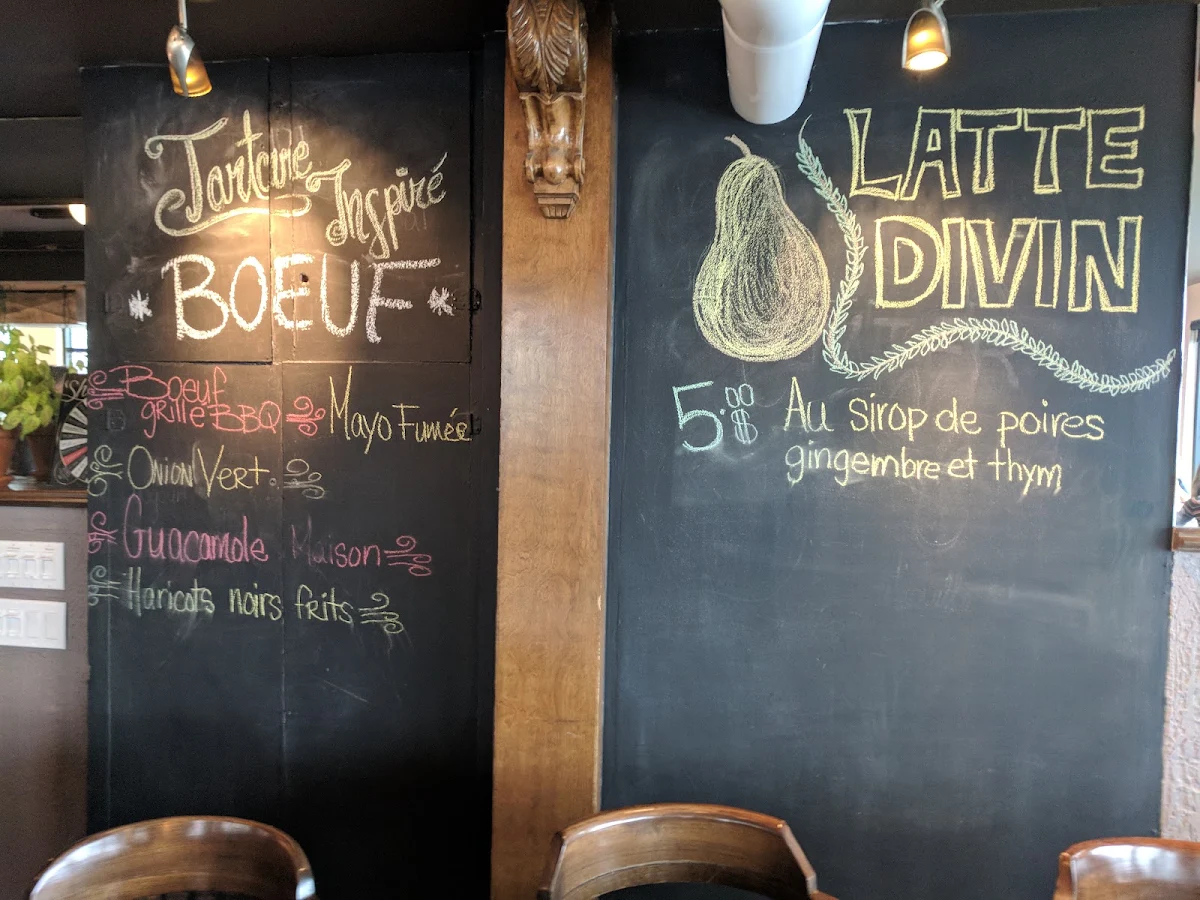 Tartare
Inspiré
BOEUF
Boeuf
grillé BBQ
Mayo Fumée
Onion Vert.
Guacamole Maison
Haricots noirs frits
LATTE
DIVIN
5.00$
Au sirop de poires
gingembre et thym